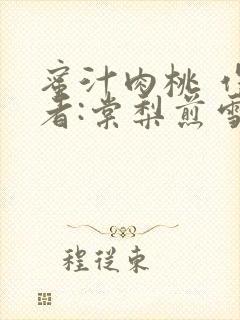 蜜汁肉桃 作
者:棠梨煎雪
程從東